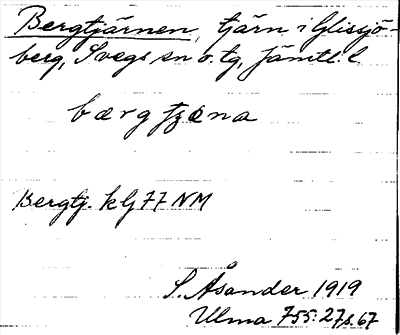 Bergtjärnen, tjärn i Glissjö-
berg, Svegs sn o. tg, Jämtl. l.
bærgtjæna
Bergtj. k lj 77 NM
S. Åsander 1919
Ulma 755:27 s. 67